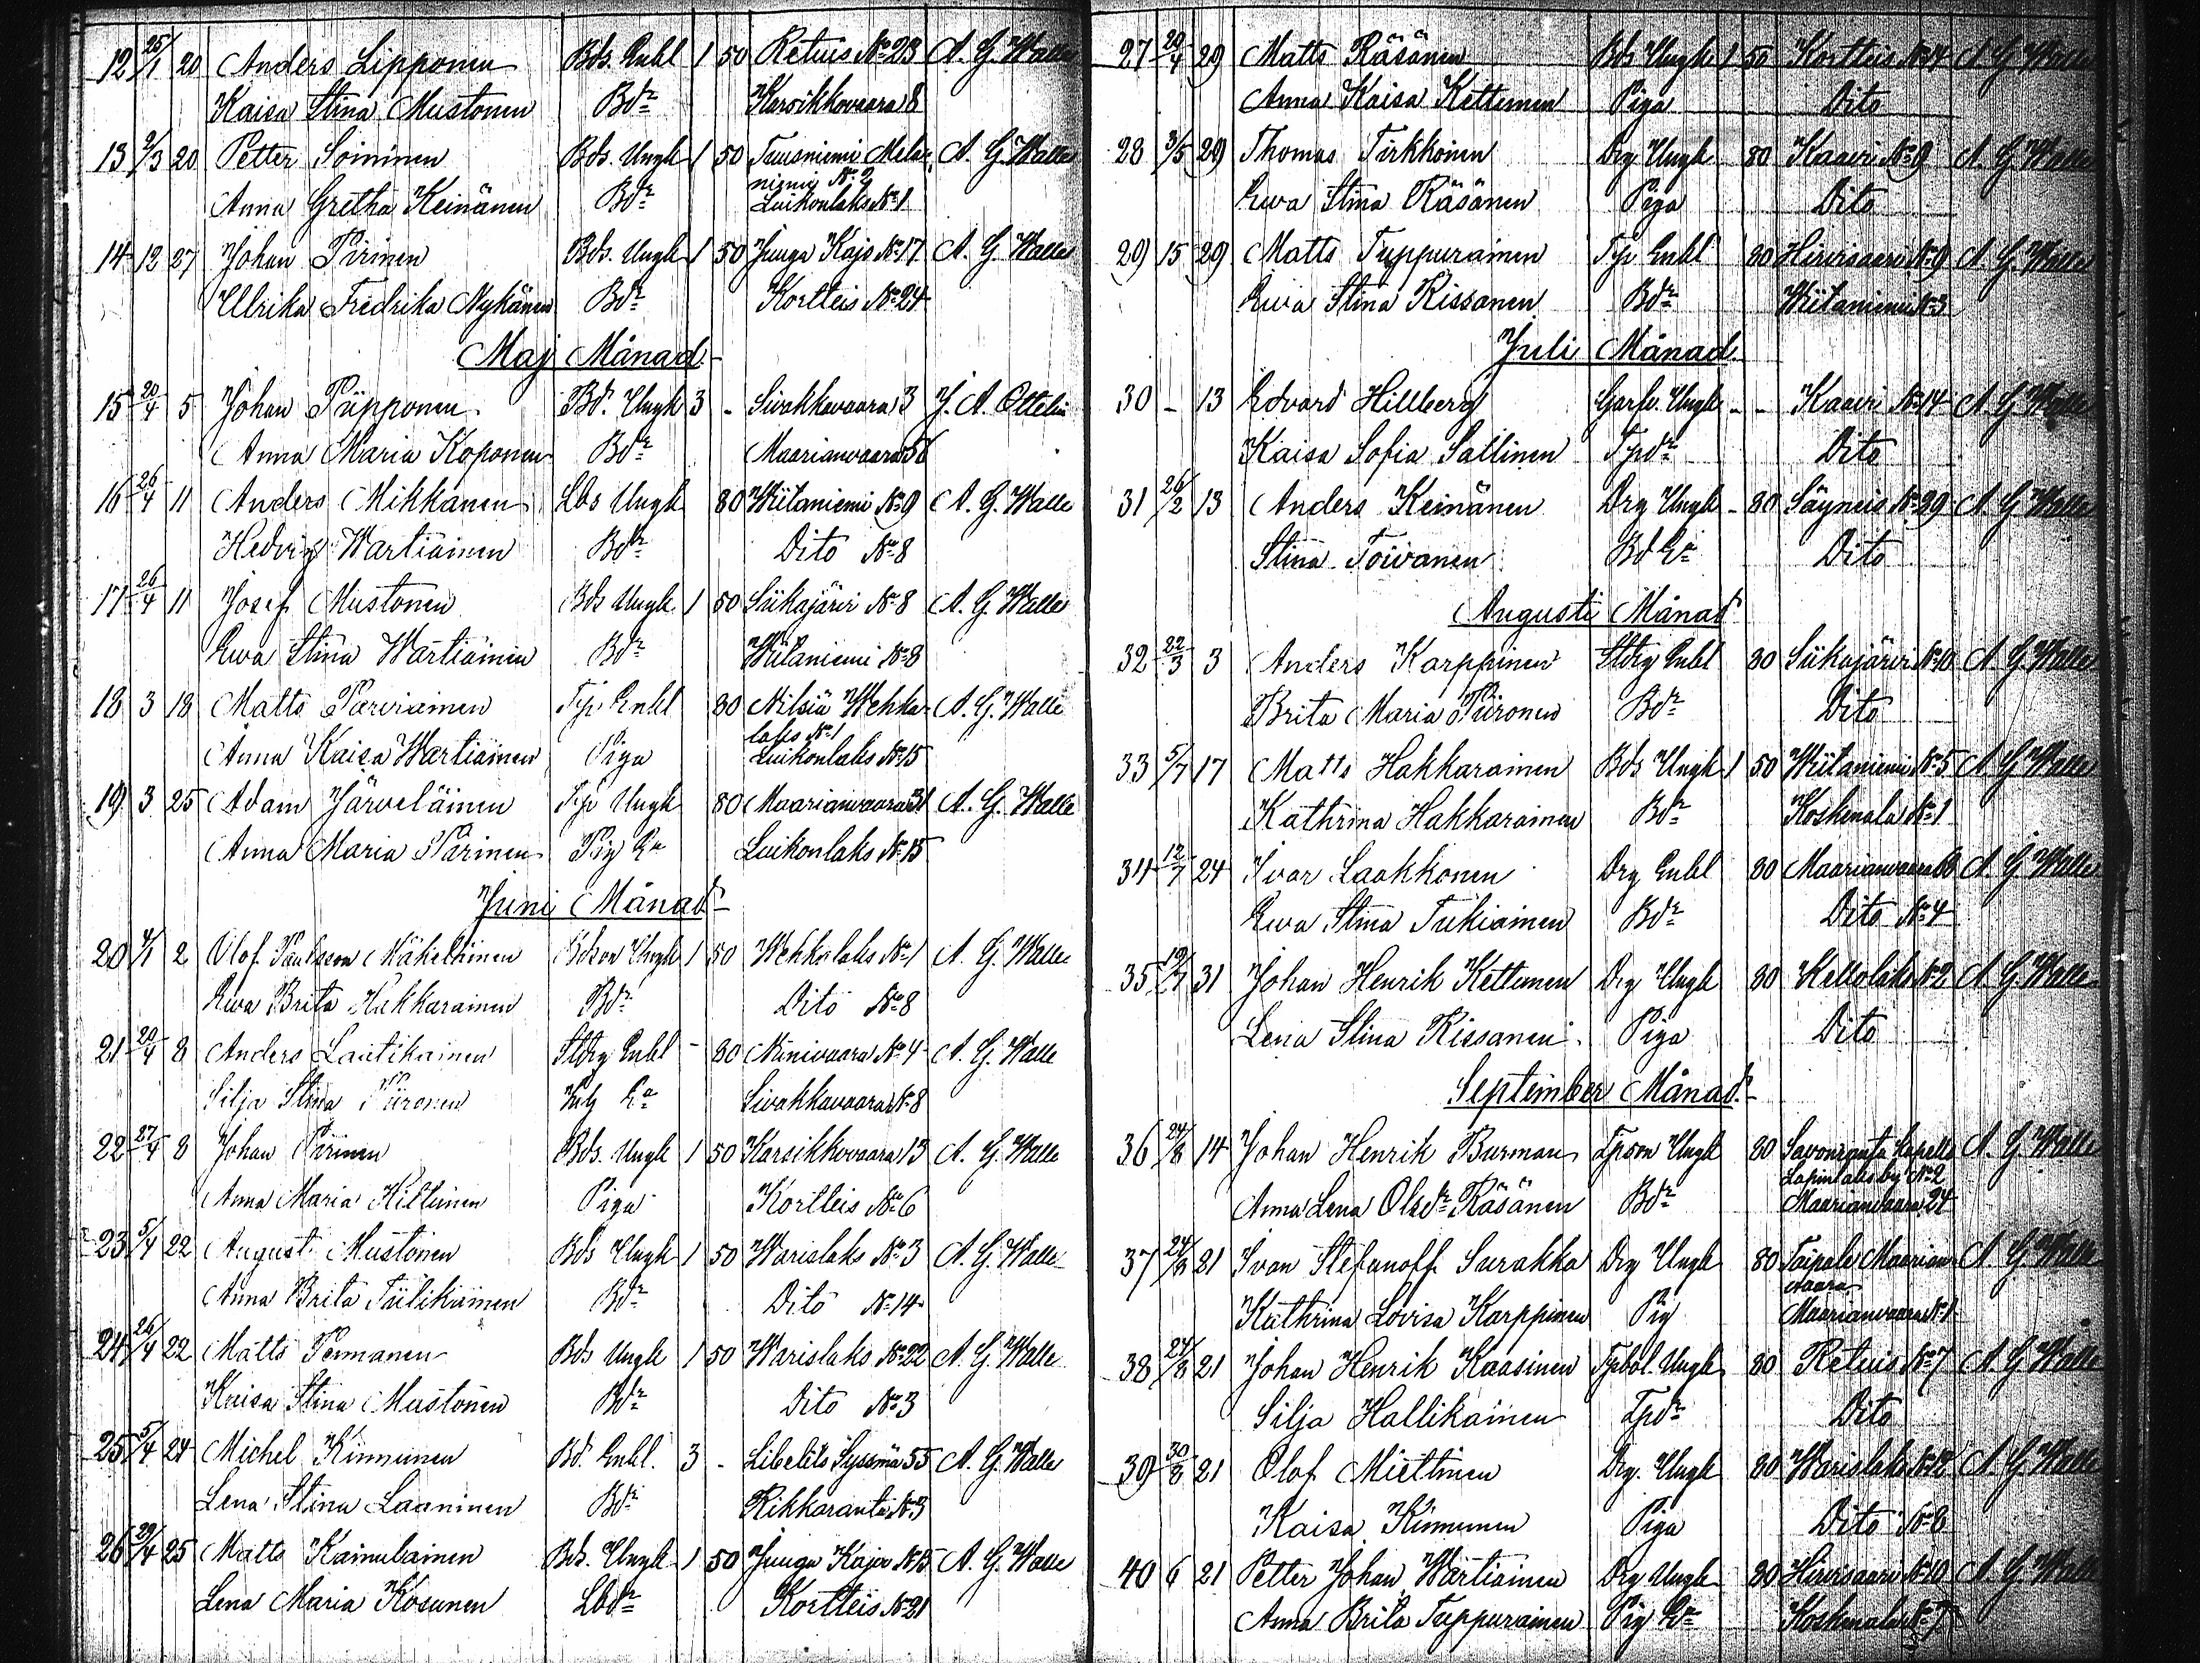 12 25/1 20 Anders Lipponen Bds. Enkl 1 50 Retuis No 23 A. G. Walle
Kaisa Stina Mustonen Bdr Karsikkovaara 8
13 9/3 20 Petter Soininen Bds. Ungk 1 50 Tuusniemi Mela- A. G. Walle
niemi No 2
Anna Gretha Keinänen Bdr Luikonlaks No 1
14 12 27 Johan Pirinen Bds. Ungk 1 50 Juuga Kajo No 17 A. G. Walle
Ulrika Fredrika Nykänen Bdr Kortteis No 24
Maj Månad
15 20/4 5 Johan Piipponen Bd. Ungk 3 - Sivakkavaara 3 J. A. Ottelin
Anna Maria Koponen Bdr Maarianvaara 56
16 26/4 11 Anders Mikkanen Lbs Ungk 80 Wiitaniemi No 9 A. G. Walle
Hedvig Wartiainen Bdr Dito No 8
17 26/4 11 Josef Mustonen Bds Ungk 1 50 Siikajärvi No 8 A. G. Walle
Ewa Stina Wartiainen Bdr Wiitaniemi No 8
18 3 18 Matts Parviainen Tjr Enkl 80 Nilsiä Wehka- A. G. Walle
laks No 1
Anna Kaisa Wartiainen Piga Luikonlaks No 15
19 3 25 Adam Järveläinen Tjr Ungk 80 Maarianvaara 31 A. G. Walle
Anna Maria Pärinen Pig Ea Luikonlaks No 15
Juni Månad
20 4/1 2 Olof Paulsson Mäkeläinen Bdson Ungk 1 50 Wehkalaks No 1 A. G. Walle
Ewa Brita Hakkarainen Bdr Dito No 8
21 20/4 8 Anders Lautikainen Stdrg Enkl - 80 Niinivaara No 4 A. G. Walle
Silja Stina Piironen Ea Sivakkavaara No 8
22 27/4 8 Johan Pirinen Bds. Ungk 1 50 Karsikkovaara 13 A. G. Walle
Anna Maria Kettunen Piga Kortteis No 6
23 5/4 22 August Mustonen Bds Ungk 1 50 Warislaks No 3 A. G. Walle
Anna Brita Tiilikainen Bdr Dito No 14
24 26/4 22 Matts Pennanen Bds Ungk 1 50 Warislaks No 22 A. G. Walle
Kaisa Stina Mustonen Bdr Dito No 3
25 5/4 24 Michel Kinnunen Bd. Enkl. 3 - Libelits Sysmä 55 A. G. Walle
Lena Stina Laaninen Bdr Rikkaranta No 3
26 29/4 25 Matts Kainulainen Bds. Ungk 1 50 Juuga Kajo No 15 A. G. Walle
Lena Maria Kosunen Lbdr Kortteis No 21
27 29/4 29 Matts Räsänen Bds Ungk 1 50 Kortteis No 14 A. G. Walle
Anna Kaisa Kettunen Piga Dito
28 3/5 29 Thomas Tirkkonen Drg Ungk 80 Kaavi No 9 A. G. Walle
Ewa Stina Räsänen Piga Dito
29 15 29 Matts Tuppurainen Tjr Enkl 80 Hirvisaari No 9 A. G. Walle
Ewa Stina Rissanen Bdr Wiitaniemi No 3
Juli Månad
30 - 13 Edvard Hillberg Garfv. Ungk - - Kaavi No 14 A. G. Walle
Kaisa Sofia Sallinen Tpdr Dito
31 26/2 13 Anders Keinänen Drg Ungk - 80 Säyneis No 29 A. G. Walle
Stina Toivanen Bd Ea Dito
Augusti Månad
32 22/3 3 Anders Karppinen Stdrg Enkl 80 Siikajärvi No 10 A. G. Walle
Brita Maria Piironen Bdr Dito
33 5/7 17 Matts Hakkarainen Bds Ungk 1 50 Wiitaniemi No 5 A. G. Walle
Kathrina Hakkarainen Bdr Koskenala No 1
34 12/7 24 Ivar Laakkonen Drg Enkl 80 Maarianvaara A. G. Walle
Ewa Stina Tukiainen Bdr Dito No 4
35 19/7 31 Johan Henrik Kettunen Drg Ungk 80 Kellolaks No 2 A. G. Walle
Lena Stina Rissanen Piga Dito
September Månad
36 24/8 14 Johan Henrik Burman Tpson Ungk 80 Savonranta kapells A. G. Walle
Lapinlaks by No 2
Anna Lena Olsdr Räsänen Bdr Maarianvaara 24
37 24/8 21 Ivan Stefanoff Surakka Drg Ungk 80 Taipale Maarian- A. G. Walle
vaara
Kathrina Lovisa Karppinen Pig Maarianvaara No 1
38 24/8 21 Johan Henrik Kaasinen Tpbol. Ungk 80 Retuis No 7 A. G. Walle
Silja Hallikainen Tpdr Dito
39 30/8 21 Olof Miettinen Drg. Ungk 80 Warislaks No 12 A. G. Walle
Kaisa Kinnunen Piga Dito No 8
40 6 21 Petter Johan Wartiainen Drg Ungk 80 Hirvisaari No 10 A. G. Walle
Anna Brita Tuppurainen Pig Ea Koskenala No 7